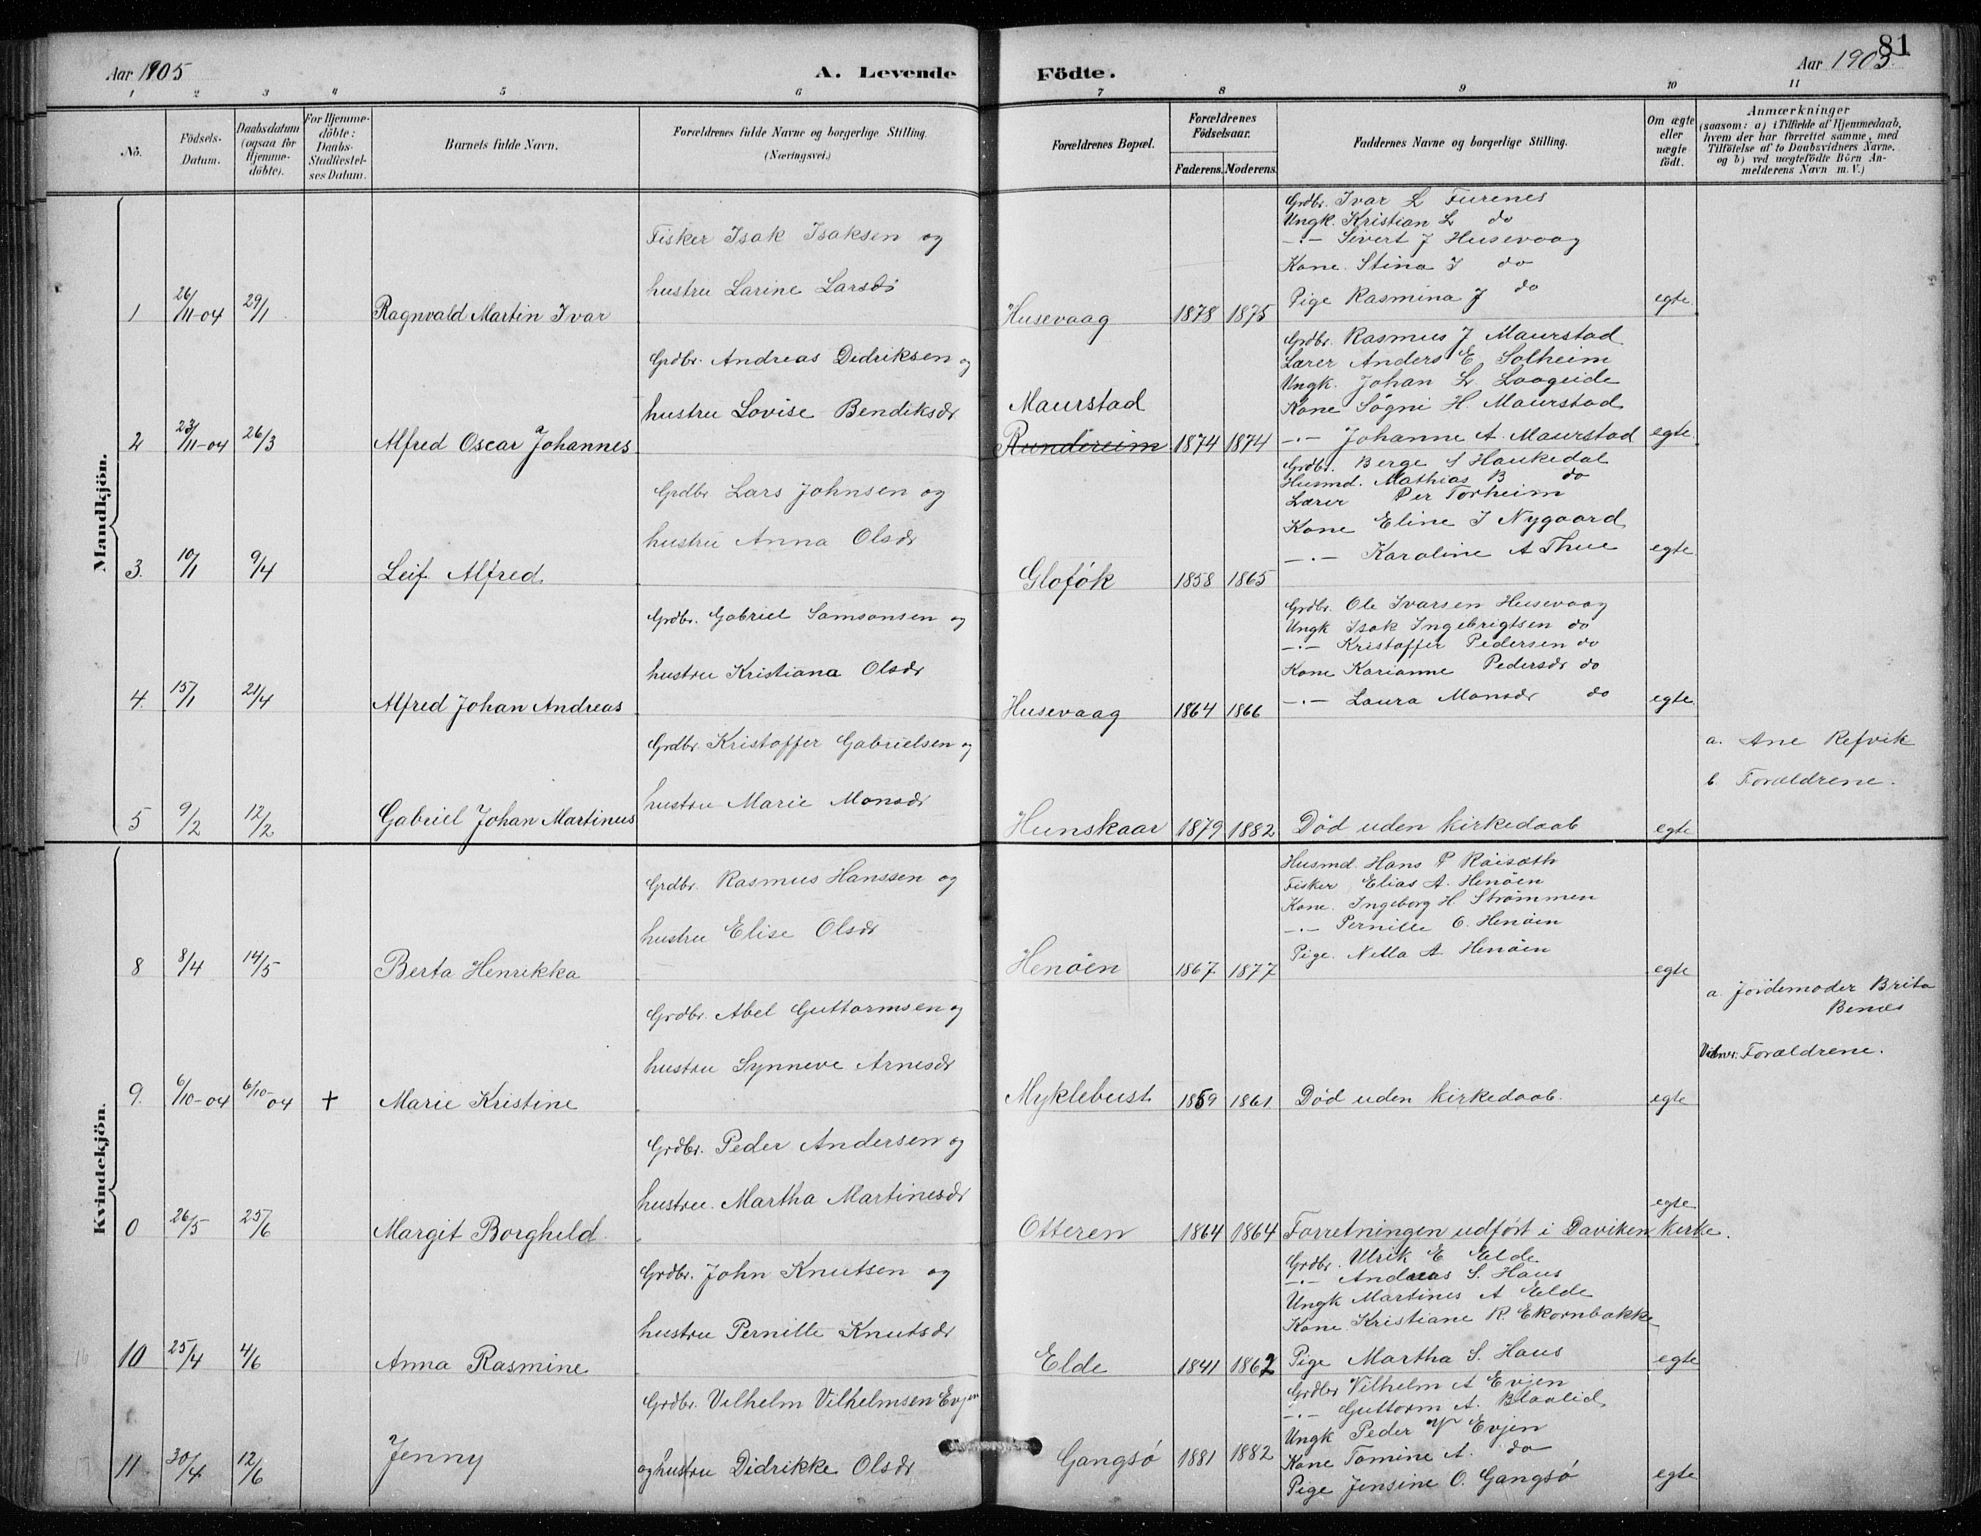 81
Aar 1905
A. Levende
Födte.
Aar 1905.
1 2 3 4 5 6 7 8 9 10 11
No.
Födsels-Datum.
Daabsdatum (ogsaa för Hjemme-döbte).
For Hjemme-döbte: Daabs-Stadfæstel-ses Datum.
Barnets fulde Navn.
Forældrenes fulde Navne og borgerlige Stilling.
(Næringsvei.)
Forældrenes Bopæl.
Forældrenes Födselsaar.
Faderens. Moderens.
Faddernes Navne og borgerlige Stilling.
Om ægte eller uægte födt.
Anmærkninger
(saasom: a) i Tilfælde af Hjemmedaab, hvem der har forrettet samme, med Tilföielse af to Daabsvidners Navne. og b) ved uægtefödte Börn An-melderens Navn m. V.)
Mandkjön.
1 26/11-04 29/1 Ragnvald Martin Ivar
Fisker Isak Isaksen og
hustru Larine Larsdr
Husevaag 1878 1875
Grdbr. Ivar L Furenes
Ungk. Kristian L do
-·- Sivert J Husevaag
Kone. Stina I do
Pige Rasmina J do
egte
2 23/11-04 26/3 Alfred Oscar Johannes
Grdbr. Andreas Didriksen og
hustru Lovise Bendiksdr
Maurstad
Rundereim 1874 1874
Grdbr. Rasmus J Maurstad
Lærer Anders E Solheim
Ungk. Johan L Laageide
Kone Søgni H Maurstad
-·- Johanne A. Maurstad
egte
3. 10/1 9/4 Leif Alfred
Grdbr Lars Johnsen og
hustru Anna Olsdr
Glofök 1858 1865
Grdbr. Berge S Haukedal
Husmd. Mathias B do
Lærer Per Torheim
Kone Eline I Nygaard
-·- Karoline A Thue
egte
4. 15/1 21/4 Alfred Johan Andreas
Grdbr. Gabriel Samsonsen og
hustru Kristiana Olsdr
Husevaag 1864 1866
Grdbr. Ole Ivarsen Husevaag
Ungk Isak Ingebrigtsen do
-·- Kristoffer Pedersen do
Kone Karianne Pedersdr do
-·- Laura Monsdr do
egte
5 9/2 12/2 Gabriel Johan Martinus
Grdbr. Kristoffer Gabrielsen og
hustru Marie Monsdr
Hunskaar 1879 1882 Död uden kirkedaab egte
a. Ane Refvik
b. Forældrene.
Kvindekjön.
8 8/4 14/5 Berta Henrikka
Grdbr. Rasmus Hanssen og
hustru Elise Olsdr
Henöen 1867 1877
Husmd. Hans P Röisæth
Fisker Elias A. Henöen
Kone. Ingeborg H Strömmen
-·- Pernille O. Henöen
Pige. Nella A Henöen
egte
9. 6/10-04 6/10-04 + Marie Kristine
Grdbr. Abel Guttormsen og
hustru Synneve Arnesdr
Myklebust 1859 1861 Död uden kirkedaab. egte
a. Jordemoder Brita
Benæs
Vidner: Forældrene.
0 26/5 25/6 Margit Borghild.
Grdbr. Peder Andersen og
hustru. Martha Martinesdr
Otteren 1864 1864 Forretningen udfört i Daviken kirke.
egte
10 25/4 4/6 Anna Rasmine
Grdbr. John Knutsen og
hustru Pernille Knutsdr
Elde 1841 1862
Grdbr. Ulrik E Elde
-·- Andreas S. Haus
Ungk Martines A Elde
Kone Kristiane R. Ekornbakke
Pige Martha S. Haus
egte
11 30/4 12/6 Jenny
Grdbr. Vilhelm Vilhelmsen Evjen
og hustru Didrikke Olsdr
Gangsö 1881 1882
Grdbr Vilhelm A Evjen
-·- Guttorm A. Blaalid
Ungk Peder V Evjen
Kone Tomine A. do
Pige Jensine O. Gangsö
egte